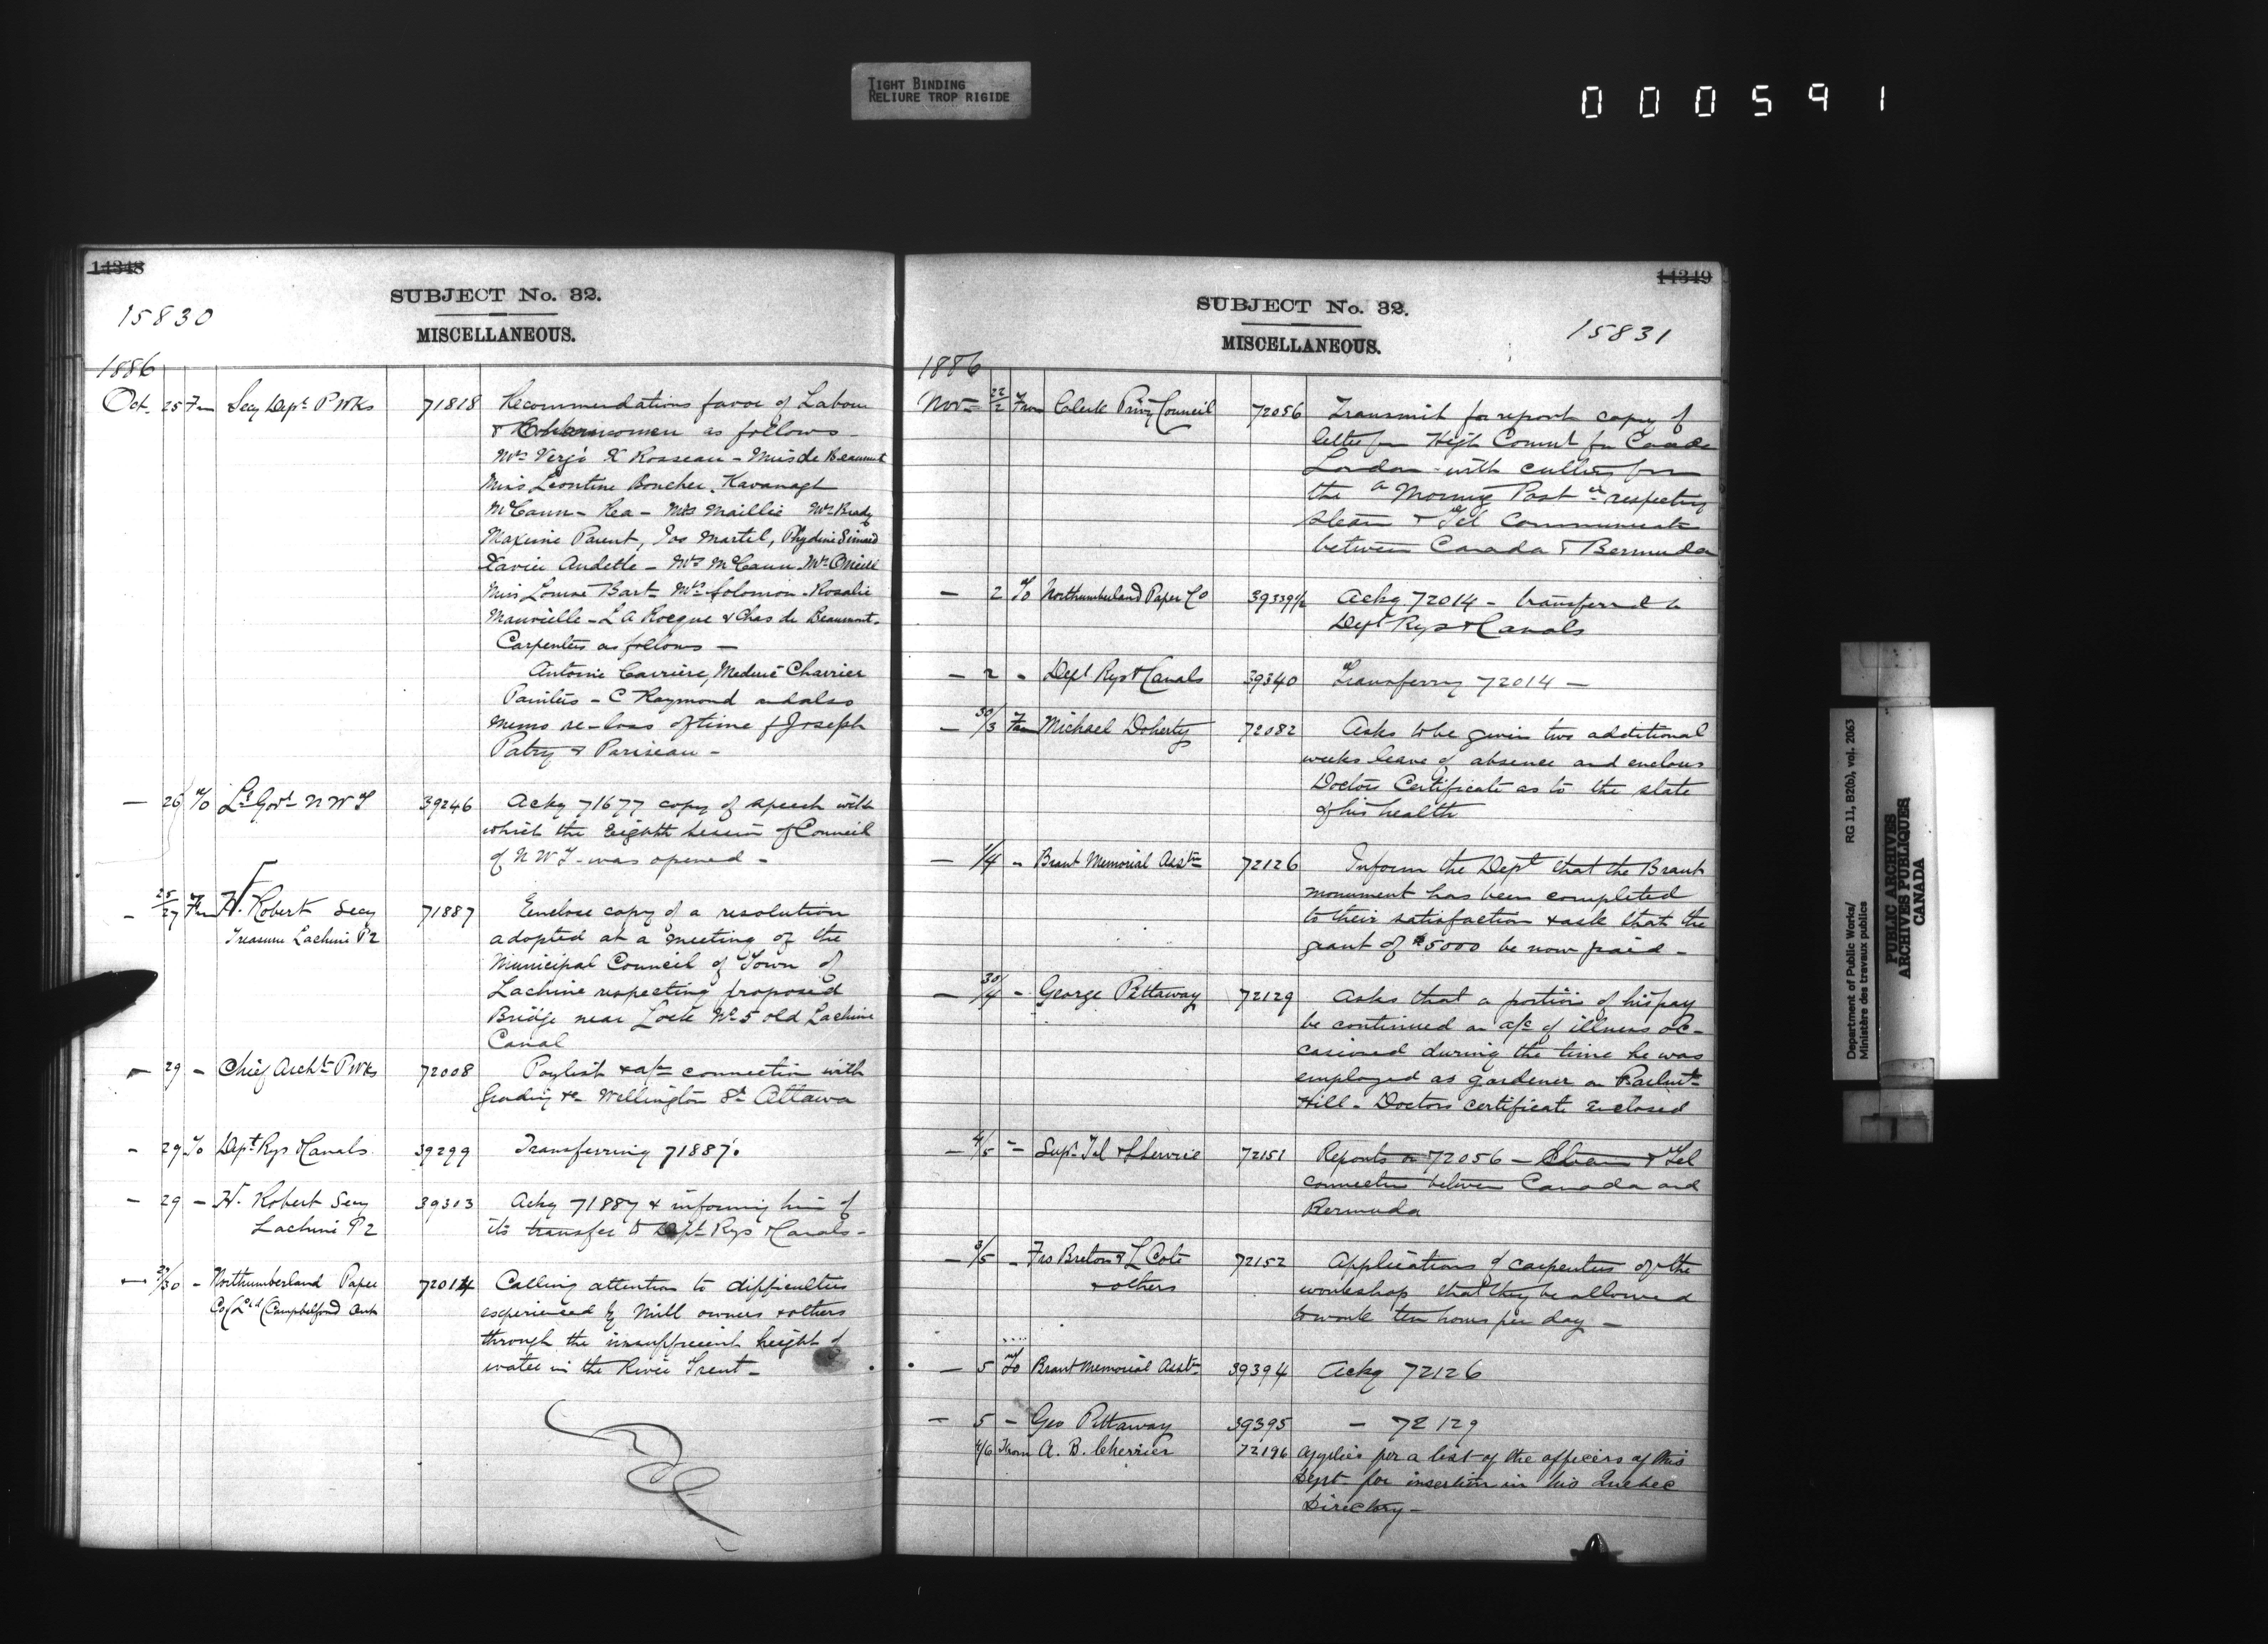 TIGHT BINDING
RELIURE TROP RIGIDE
000591
14348
SUBJECT No. 32.
15830
MISCELLANEOUS.
1886
Oct. 25 Fm Secy Dept P Wks 71818 Recommendations favor of Labour
& Charwomen as follows -
Mrs X Rosseau - Miss de Beaumont
Miss Leontine Boucher. Kavanagh
McCann - Rea - Mrs Maillie Mrs Brady
Maxime Parent, Jos Martel, Simard
Xavier Audette - Mrs McCann - Mrs O'Neill
Miss Louise Bart - Mrs Solomon - Rosalie
- L A Rocque & Chas de Beaumont -
Carpenters as follows -
Antoine Carriere, Charrier
Painters - C Raymond and also
memo re - loss of time of Joseph
Patry & Pariseau -
— 26 To Lt Govr N W T 39246 Ackg 71677 copy of speech with
which the Eighth Session of Council
of N W T - was opened -
- 25/27 Fm H. Robert Secy 71887 Enclose copy of a resolution
Treasurer Lachine PQ adopted at a meeting of the
Municipal Council of Town of
Lachine respecting proposed
Bridge near Lock No 5 old Lachine
Canal
- 29 - Chief Archt P Wks 72008 Paylist & a/c connection with
Grading &c Wellington St Ottawa
- 29 To Dept Rys & Canals 39299 Transferring 71887.
- 29 - H. Robert Secy 39313 Ackg 71887 & informing him of
Lachine PQ its transfer to Dept Rys & Canals -
— /30 - Northumberland Paper 72014 Calling attention to difficulties
Co (Ltd) Campbellford Ont experienced by Mill owners & others
through the insufficient height of
water in the River Trent -
14349
SUBJECT No. 32.
15831
MISCELLANEOUS.
1886
Nov - 22/2 From Clerk Privy Council 72056 Transmit for report copy of
letter fm High Commr for Canada
London - with cutting from
the "Morning Post" respecting
steam & Tel Communicate
between Canada & Bermuda
— 2 To Northumberland Paper Co 39339½ Ackg 72014 - transferred to
Dept Rys & Canals
— 2 - Dept Rys & Canals 39340 Transferring 72014 —
— 30/3 From Michael Doherty 72082 Asks to be given two additional
weeks leave of absence and enclous
Doctors Certificate as to the state
of his health
— 1/4 - Brant Memorial Asstn 72126 Inform the Dept that the Brant
monument has been completed
to their satisfaction & ask that the
grant of $5000 be now paid -
— 30/4 - George Pettaway 72129 Asks that a portion of his pay
be continued on a/c of illness oc-
casioned during the time he was
employed as gardener on Parlmt
Hill - Doctors certificate enclosed
— 4/5 - Supt Tel & S Service 72151 Reports on 72056 - Steam & Tel
connection between Canada and
Bermuda
— 3/5 - Frs Breton & L Cote 72152 Applications of carpenters of the
& others workshop that they be allowed
to work ten hours per day —
— 5 To Brant Memorial Asstn 39394 Ackg 72126
— 5 - Geo Pettaway 39395 - 72129
4/6 From A. B. Cherrier 72196 applies for a list of the officers of this
Dept - for insertion in his Quebec
Directory -
Department of Public Works/
Ministère des travaux publics
RG 11, B2(b), vol. 2063
PUBLIC ARCHIVES
ARCHIVES PUBLIQUES
CANADA